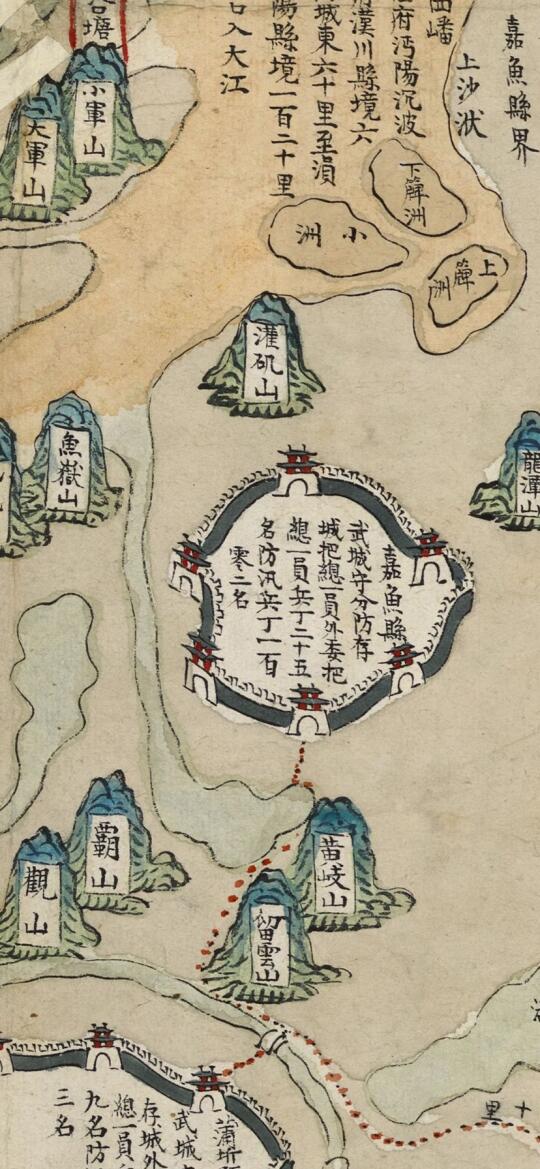 嘉魚縣界
上沙洑
府沔陽沉波
漢川縣境六
城東六十里至溳
陽縣境一百二十里
入大江
小軍山
大軍山
下簰洲
小洲
上簰洲
灌矶山
魚嶽山
龍潭山
嘉魚縣
武城守分防存
城把總一員外委把
總一員兵丁二十五
名防汛兵丁一百
零二名
霸山
觀山
黄岐山
留雲山
十里
武城
存城外
總一員
九名防
三名